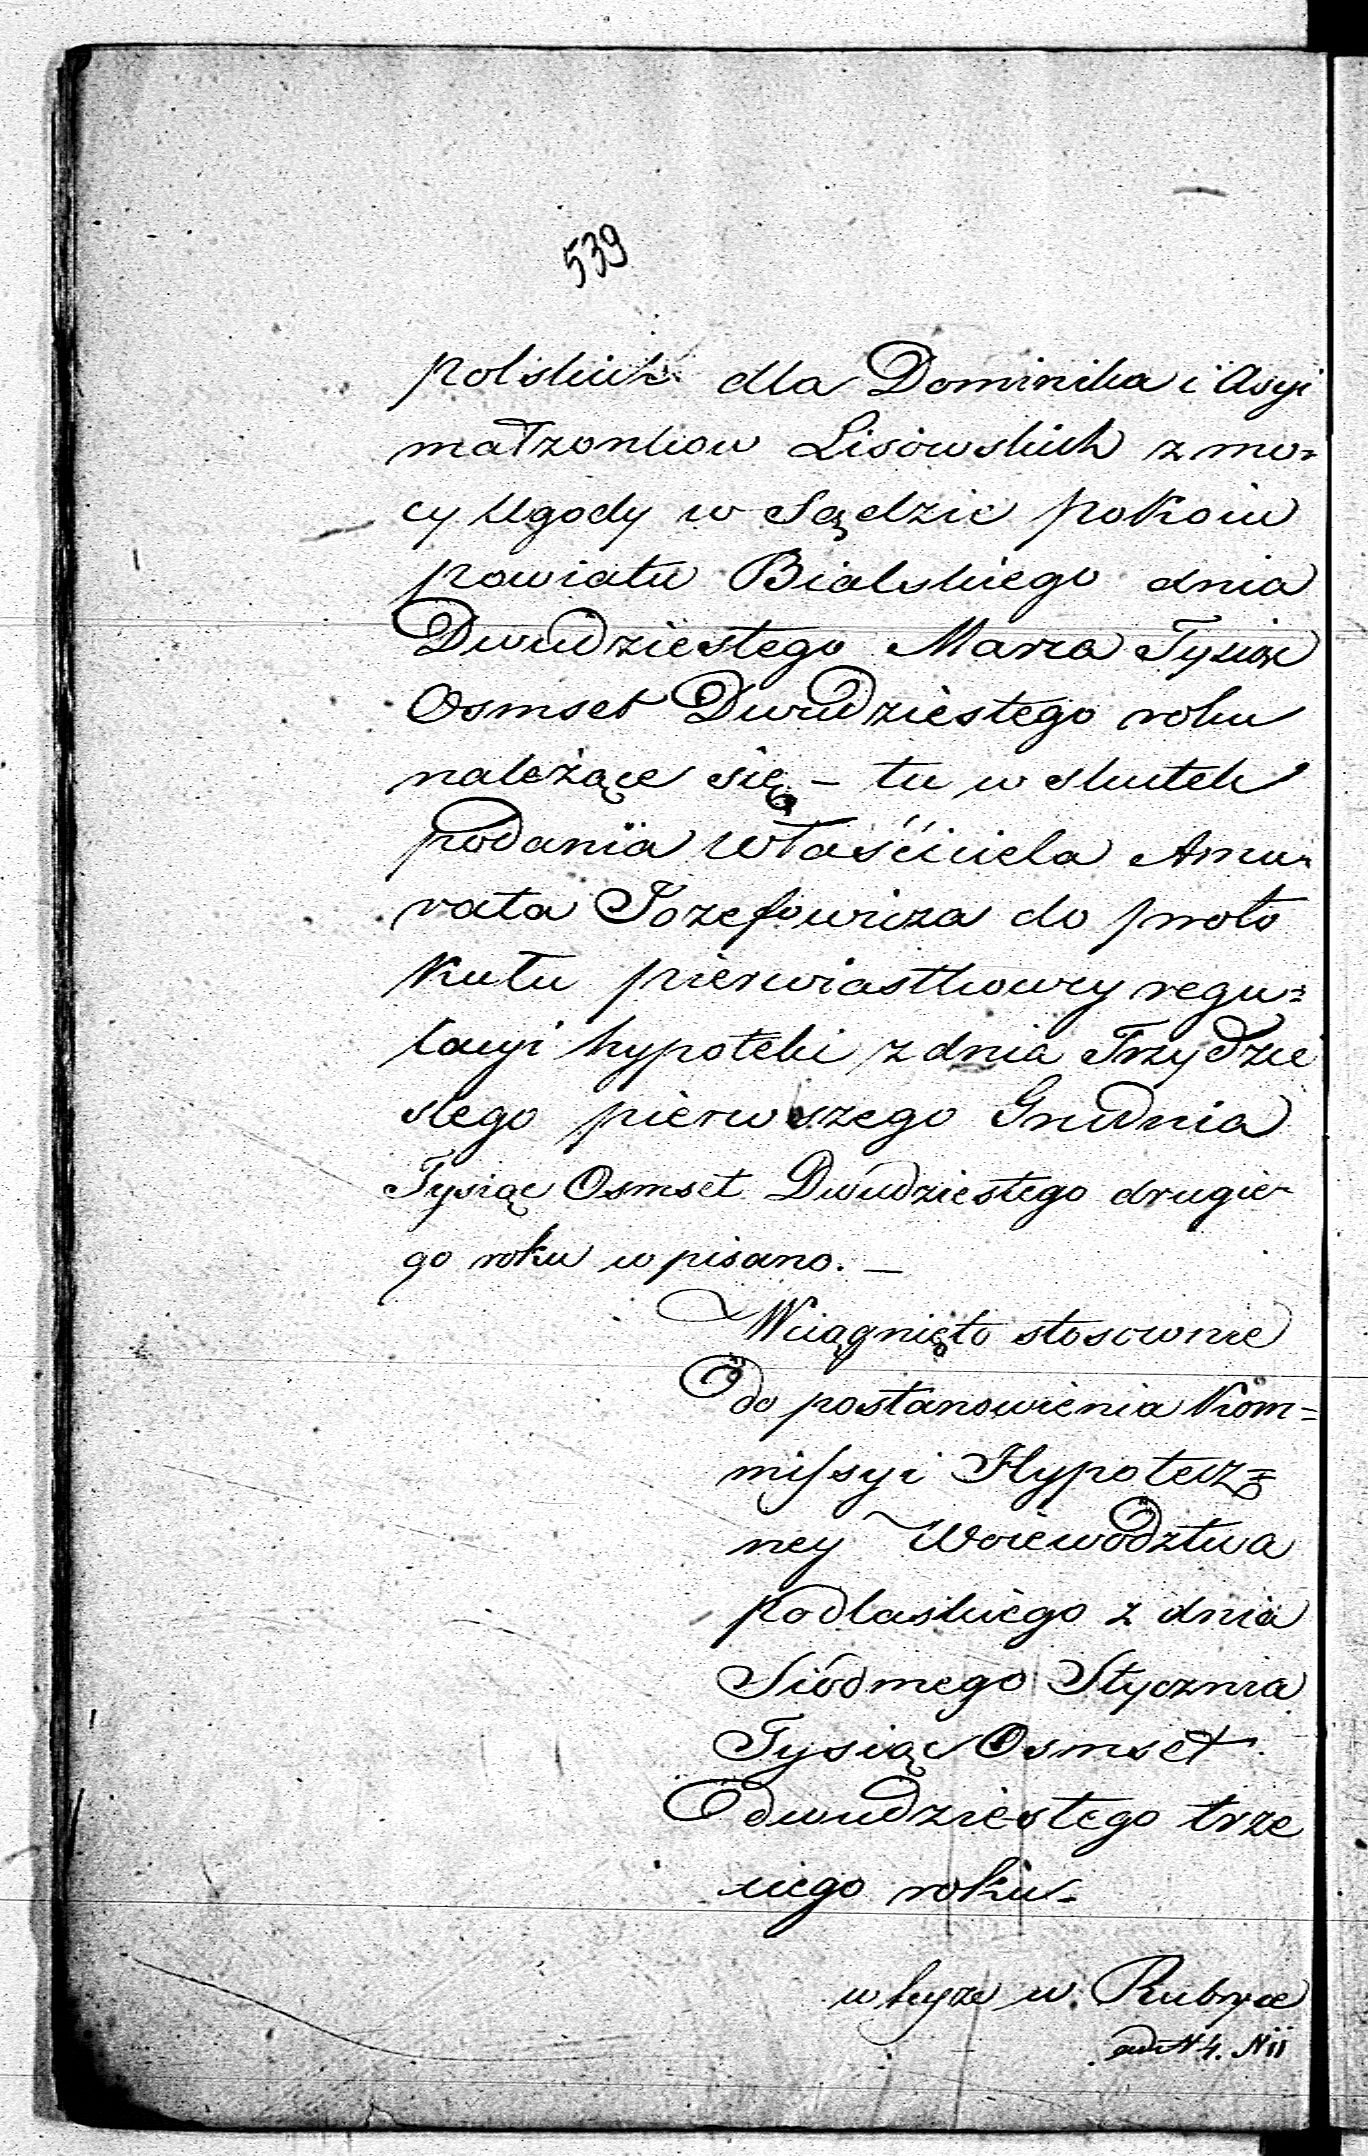 539
polskich dla Dominika i Asyi
małżonkow Lisowskich z mo=
cy Ugody w Sądzie pokoiu
powiatu Bialskiego dnia
Dwudziestego Marca Tysiąc
Osmset Dwudziestego roku
należące się – tu w skutek
podania właściciela Amu=
rata Jozefowicza do proto
kułu pierwiastkowey regu=
lacyi hypoteki z dnia Trzydzie
stego pierwszego Grudnia
Tysiąc Osmset Dwudziestego drugie=
go roku wpisano. –
Wciągnięto stosownie
do postanowienia Kom=
missyi Hypotecz=
ney Woiewodztwa
podlaskiego z dnia
Siódmego Stycznia
Tysiąc Osmset
dwudziestego trze
ciego roku.
w Rubryce
ad N 4.